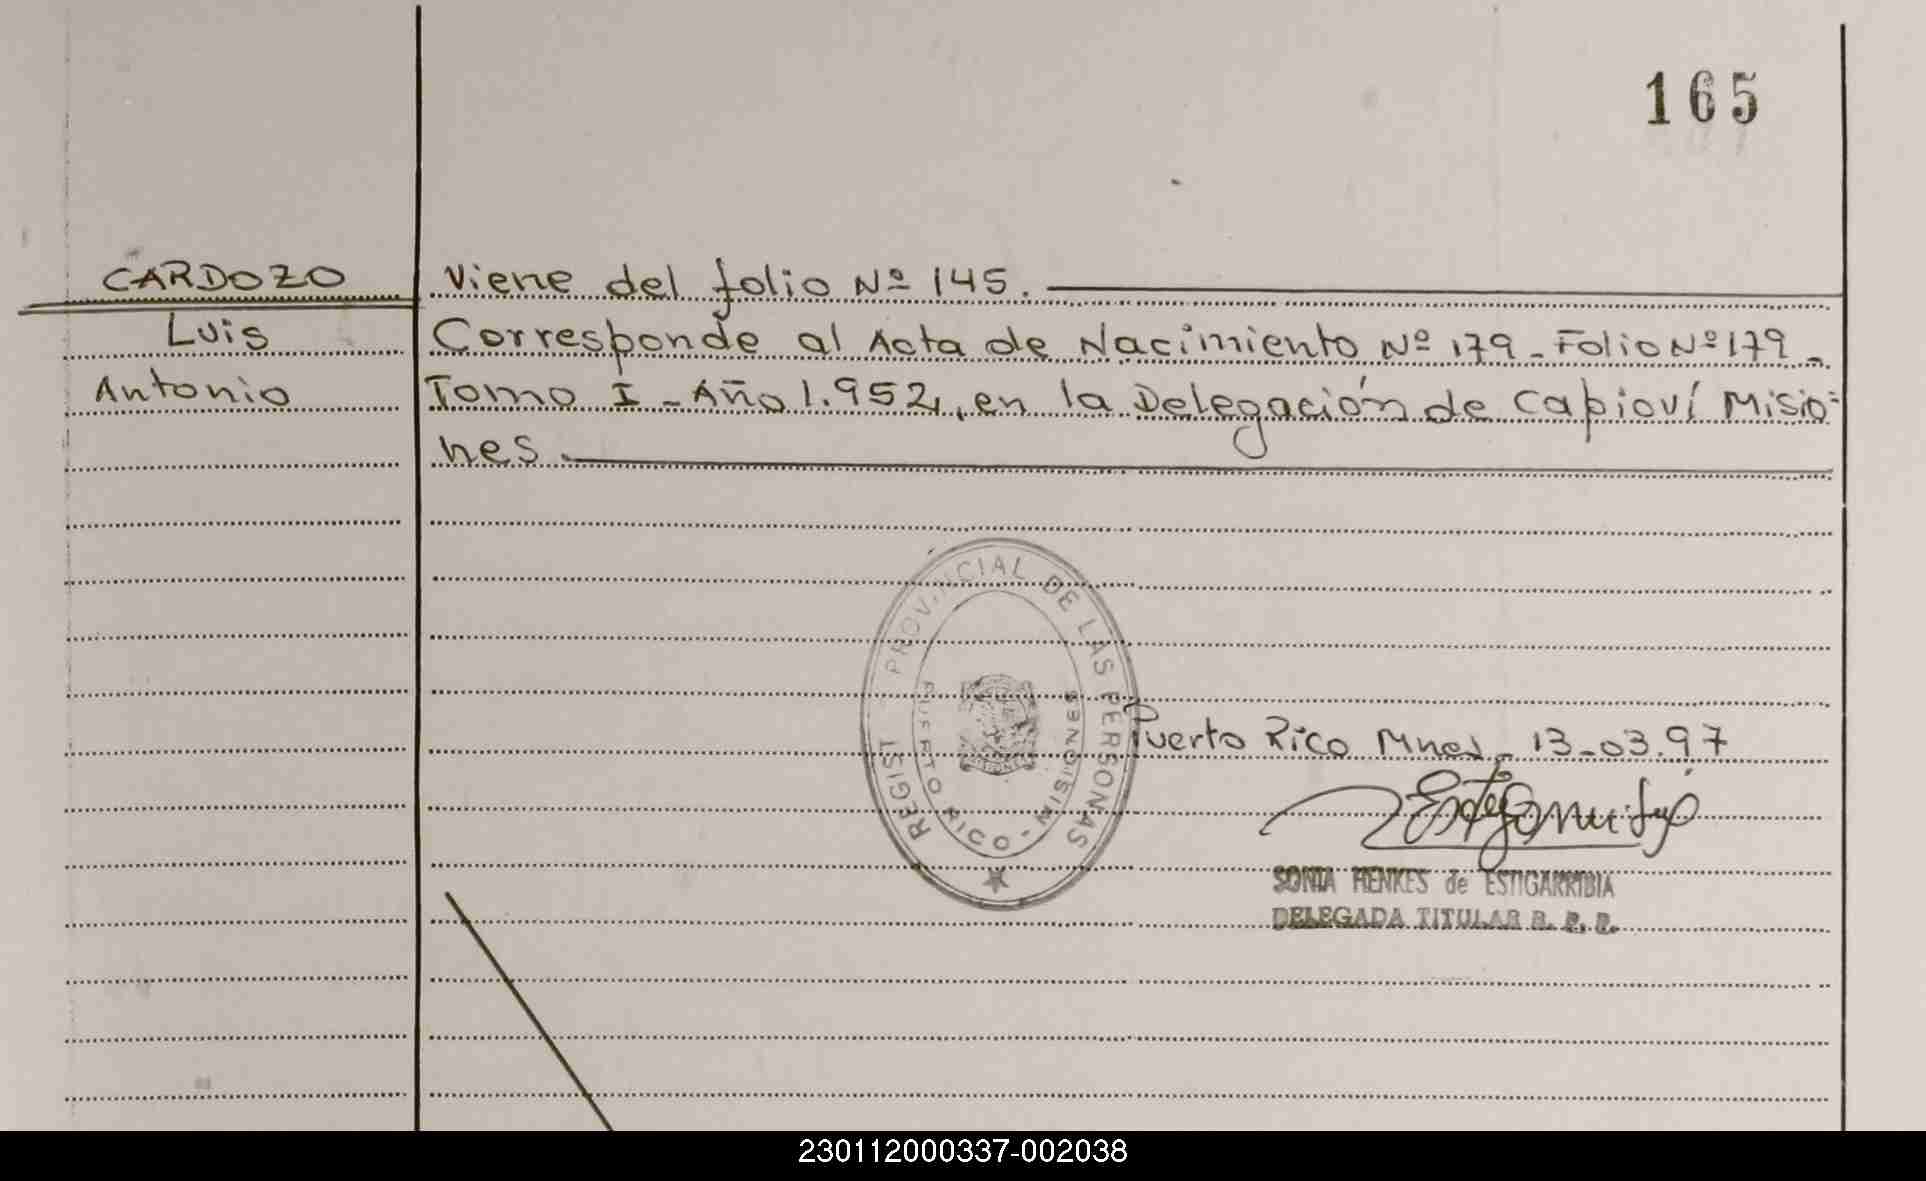 165
CARDOZO
Luis
Antonio
Viene del folio Nº 145.
Corresponde al Acta de Nacimiento Nº 179 - Folio Nº 179 -
Tomo I - Año 1.952, en la Delegación de Capioví Misio=
nes.
REGIST PROVINCIAL DE LAS PERSONAS
PUERTO RICO - MISIONES
Puerto Rico Mnes - 13-03.97
SONIA HENKES de ESTIGARRIBIA
DELEGADA TITULAR R. P. P.
230112000337-002038